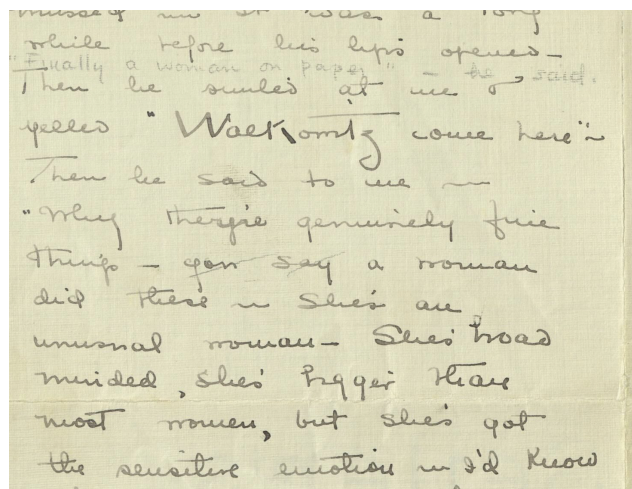 it was a long
while before his lips opened —
"Finally a woman on paper" — he said.
Then he smiled at me &
yelled "Walkowitz come here" ~
Then he said to me —
"Why they're genuinely fine
things — you say a woman
did these ~ She's an
unusual woman — She's broad
minded, She's bigger than
most women, but she's got
the sensitive emotion ~ I'd know